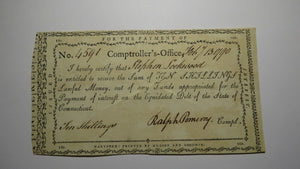 FOR THE PAYMENT OF
No. 4591 Comptroller's-Office, Nov.r 13 1790
I hereby certify that Stephen Lockwood
is entitled to receive the Sum of TEN SHILLINGS
Lawful Money, out of any Funds appropriated for the
Payment of Interest on the Liquidated Debt of the State of
Connecticut.
Ten Shillings Ralph Pomeroy Compt.
HARTFORD: PRINTED BY HUDSON AND GOODWIN.